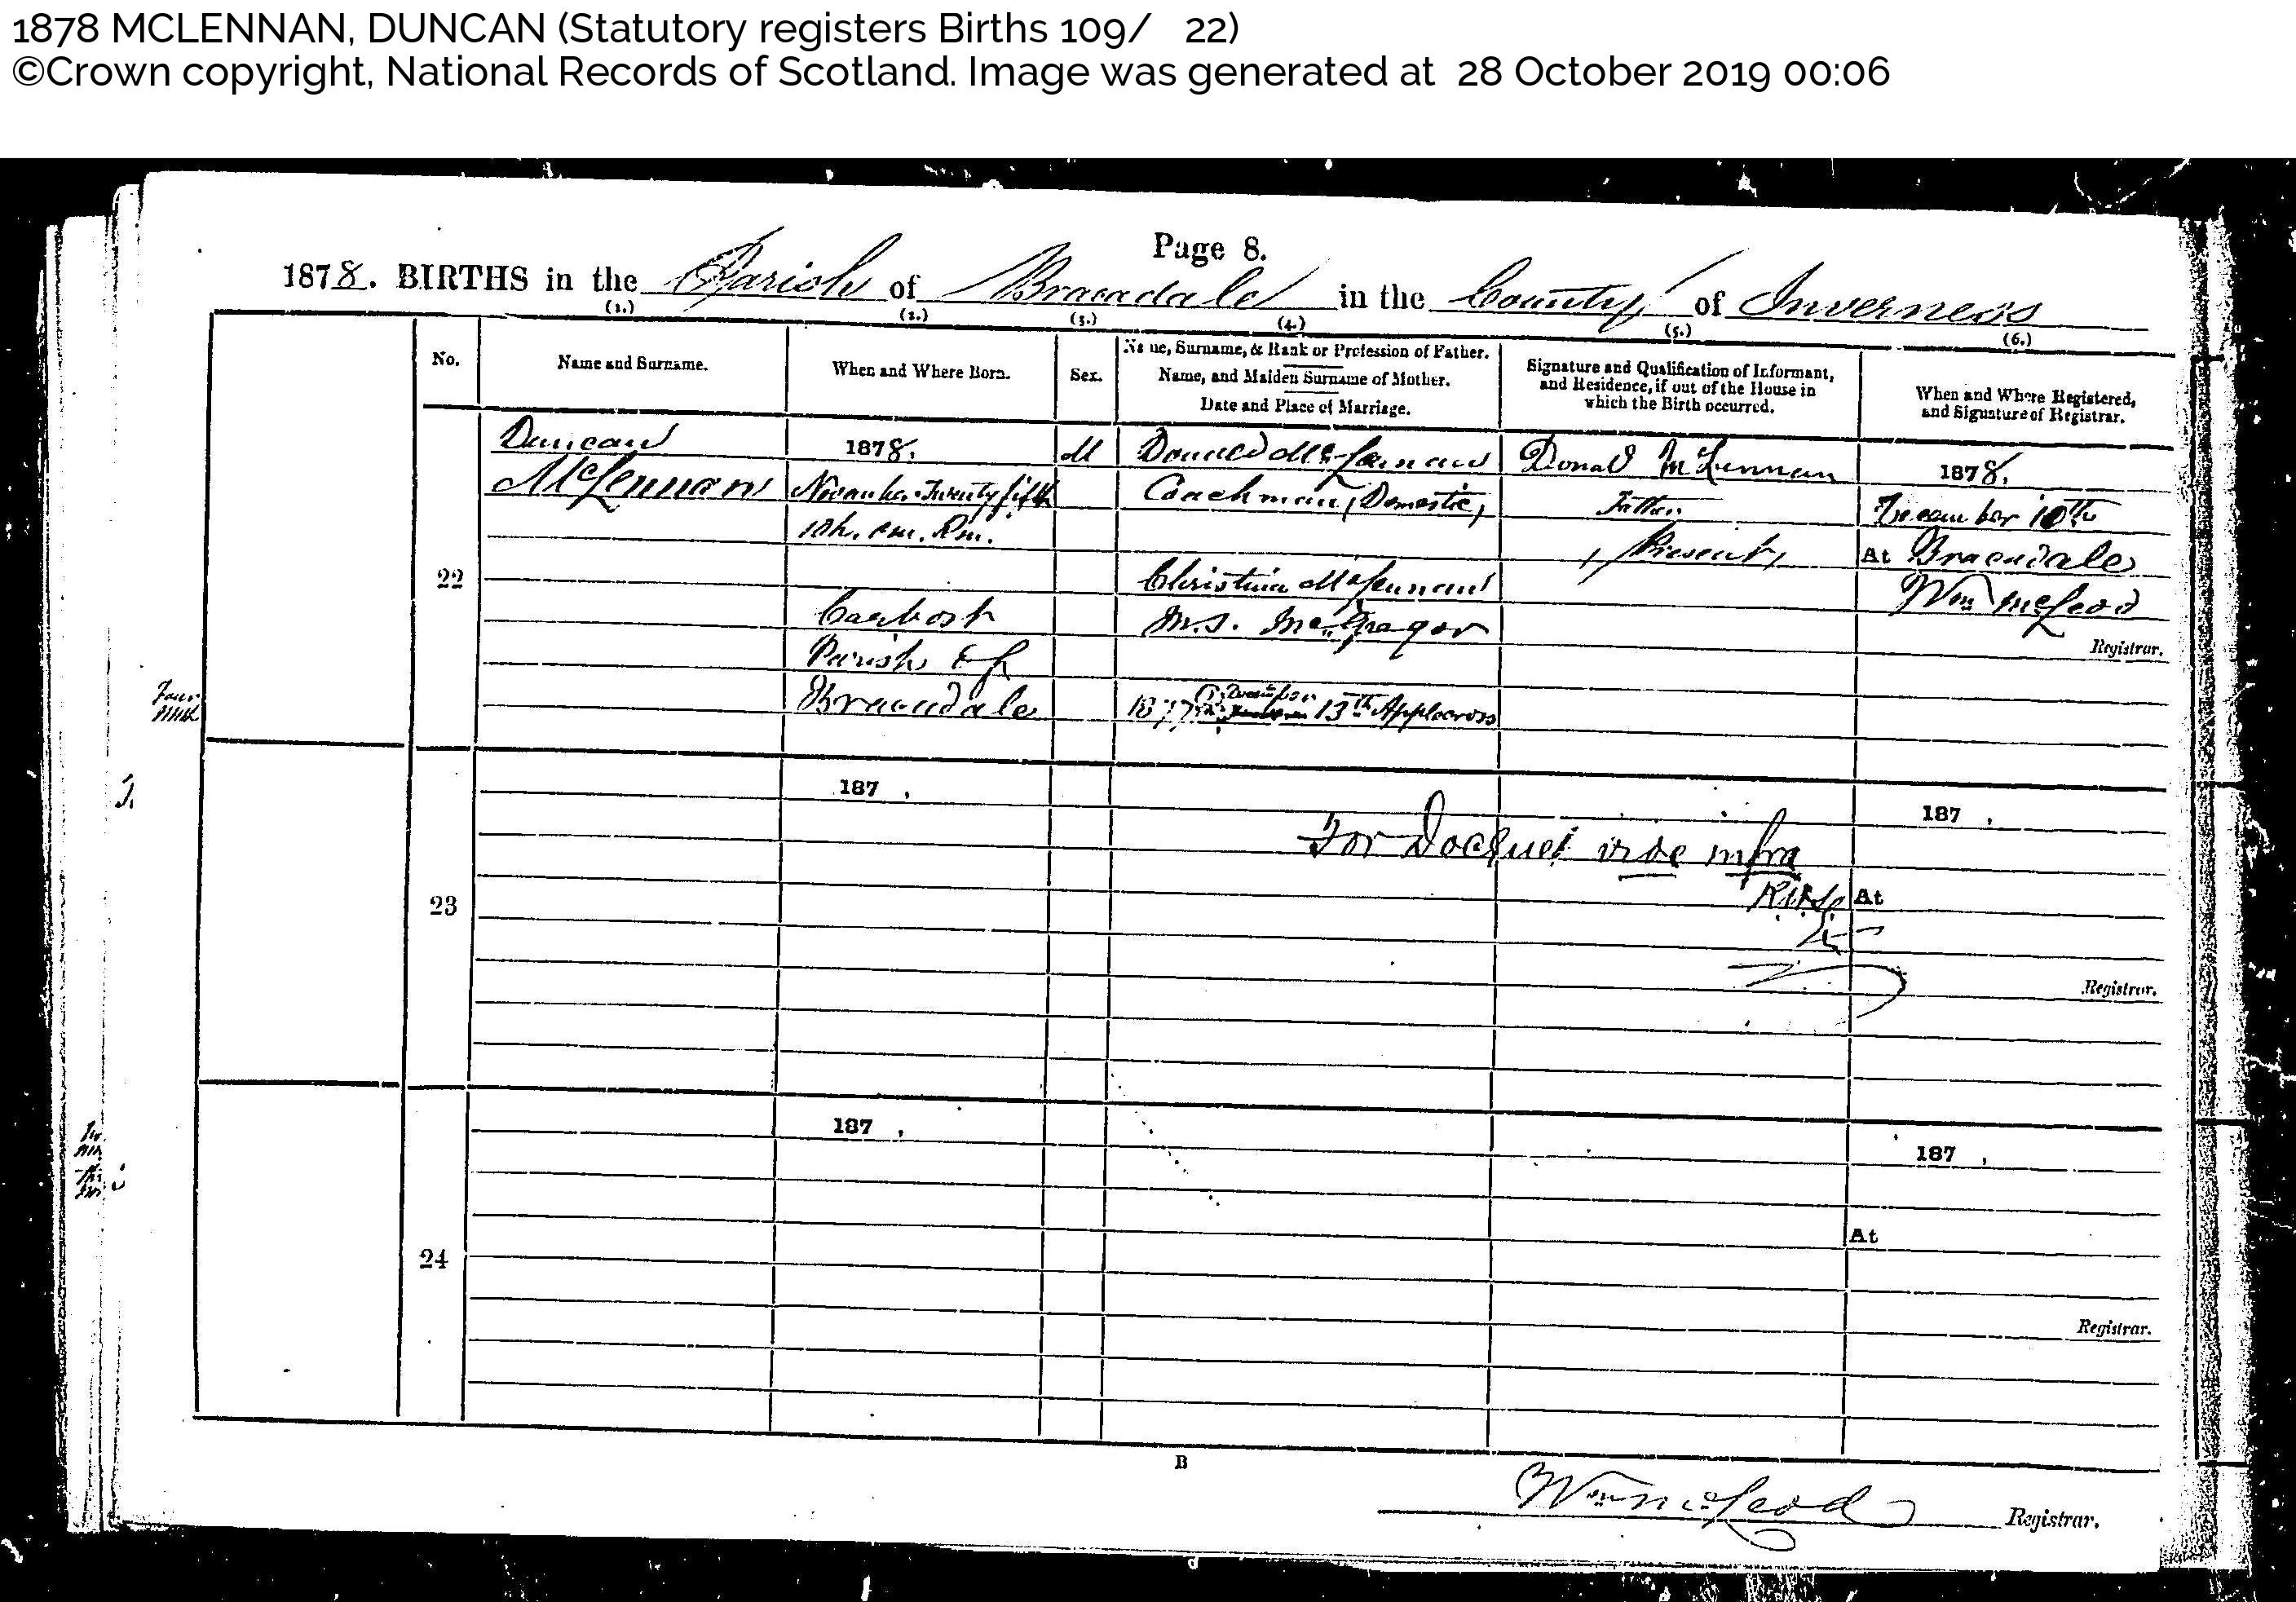 1878 MCLENNAN, DUNCAN (Statutory registers Births 109/ 22)
©Crown copyright, National Records of Scotland. Image was generated at 28 October 2019 00:06
Page 8.
1878. BIRTHS in the Parish of Bracadale in the County of Inverness
(1.) (2.) (3.) (4.) (5.) (6.)
No.
Name and Surname.
When and Where Born.
Sex.
Name, Surname, & Rank or Profession of Father.
Name, and Maiden Surname of Mother.
Date and Place of Marriage.
Signature and Qualification of Informant,
and Residence, if out of the House in
which the Birth occurred.
When and Where Registered,
and Signature of Registrar.
22
Duncan
McLennan
1878.
November Twenty fifth
10h. m.
Carbost
Parish of
Bracadale
M
Donald McLennan
Coachman, (Domestic)
Christina McLennan
M.S. MacGregor
1877 December 13th Applecross
Donald McLennan
Father
(Present)
1878.
December 10th
At Bracadale
Wm McLeod
Registrar.
23
187 .
For Docquet vide infra
187 .
At
Registrar.
24
187 .
187 .
At
Registrar.
B
Wm McLeod Registrar.